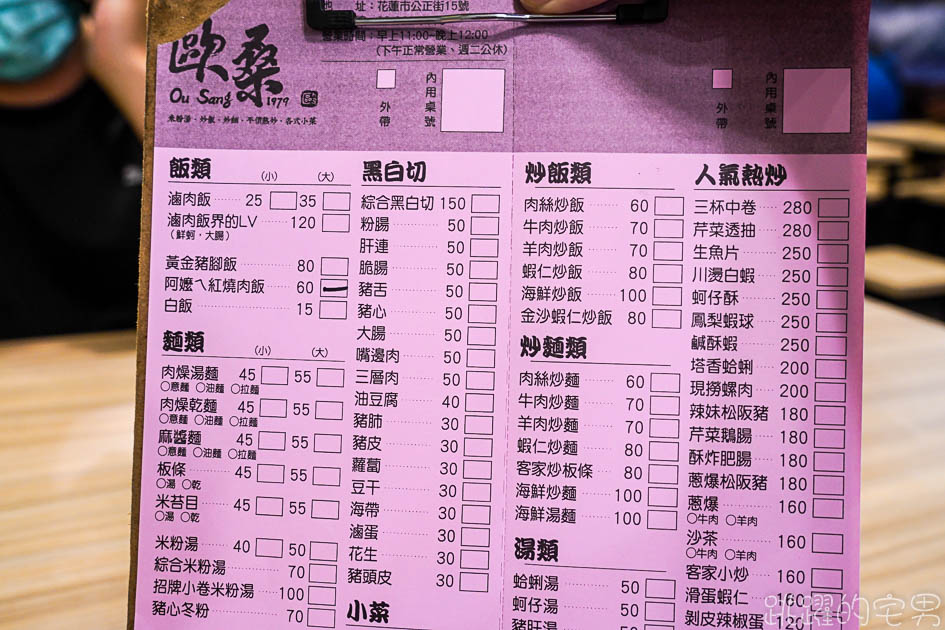 地 址：花蓮市公正街15號
營業時間：早上11:00~晚上12:00
(下午正常營業、週二公休)
歐桑
Ou Sang 1979
米粉湯、炒飯、炒麵、平價熱炒、各式小菜
外帶
內用桌號
外帶
內用桌號
飯類 (小) (大)
滷肉飯 25 35
滷肉飯界的LV 120
(鮮蚵，大腸)
黃金豬腳飯 80
阿嬤ㄟ紅燒肉飯 60
白飯 15
麵類 (小) (大)
肉燥湯麵 45 55
○意麵 ○油麵 ○拉麵
肉燥乾麵 45 55
○意麵 ○油麵 ○拉麵
麻醬麵 45 55
○意麵 ○油麵 ○拉麵
板條 45 55
○湯 ○乾
米苔目 45 55
○湯 ○乾
米粉湯 40 50
綜合米粉湯 70
招牌小卷米粉湯 100
豬心冬粉 70
黑白切
綜合黑白切 150
粉腸 50
肝連 50
脆腸 50
豬舌 50
豬心 50
大腸 50
嘴邊肉 50
三層肉 50
油豆腐 40
豬肺 30
豬皮 30
蘿蔔 30
豆干 30
海帶 30
滷蛋 30
花生 30
豬頭皮 30
小菜
炒飯類
肉絲炒飯 60
牛肉炒飯 70
羊肉炒飯 70
蝦仁炒飯 80
海鮮炒飯 100
金沙蝦仁炒飯 80
炒麵類
肉絲炒麵 60
牛肉炒麵 70
羊肉炒麵 70
蝦仁炒麵 80
客家炒板條 80
海鮮炒麵 100
海鮮湯麵 100
湯類
蛤蜊湯 50
蚵仔湯 50
豬肝湯 50
人氣熱炒
三杯中卷 280
芹菜透抽 280
生魚片 250
川燙白蝦 250
蚵仔酥 250
鳳梨蝦球 250
鹹酥蝦 250
塔香蛤蜊 200
現撈螺肉 200
辣妹松阪豬 180
芹菜鵝腸 180
酥炸肥腸 180
蔥爆松阪豬 180
蔥爆 160
○牛肉 ○羊肉
沙茶 160
○牛肉 ○羊肉
客家小炒 160
滑蛋蝦仁 160
剝皮辣椒蛋 120
跳躍的宅男